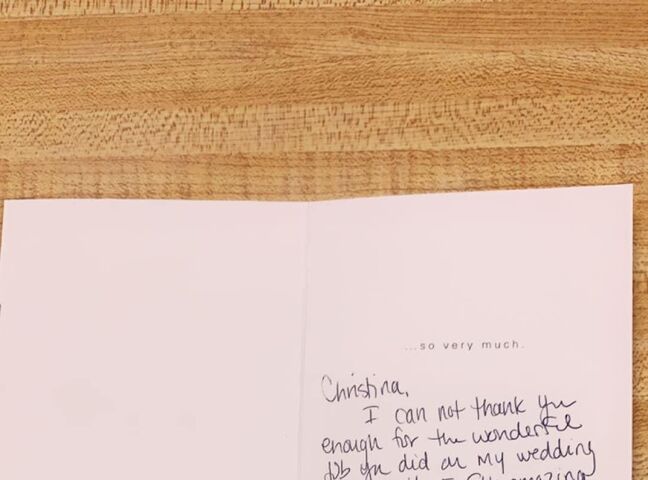 ...so very much.
Christina,
I can not thank you
enough for the wonderful
job you did on my wedding
I amazing